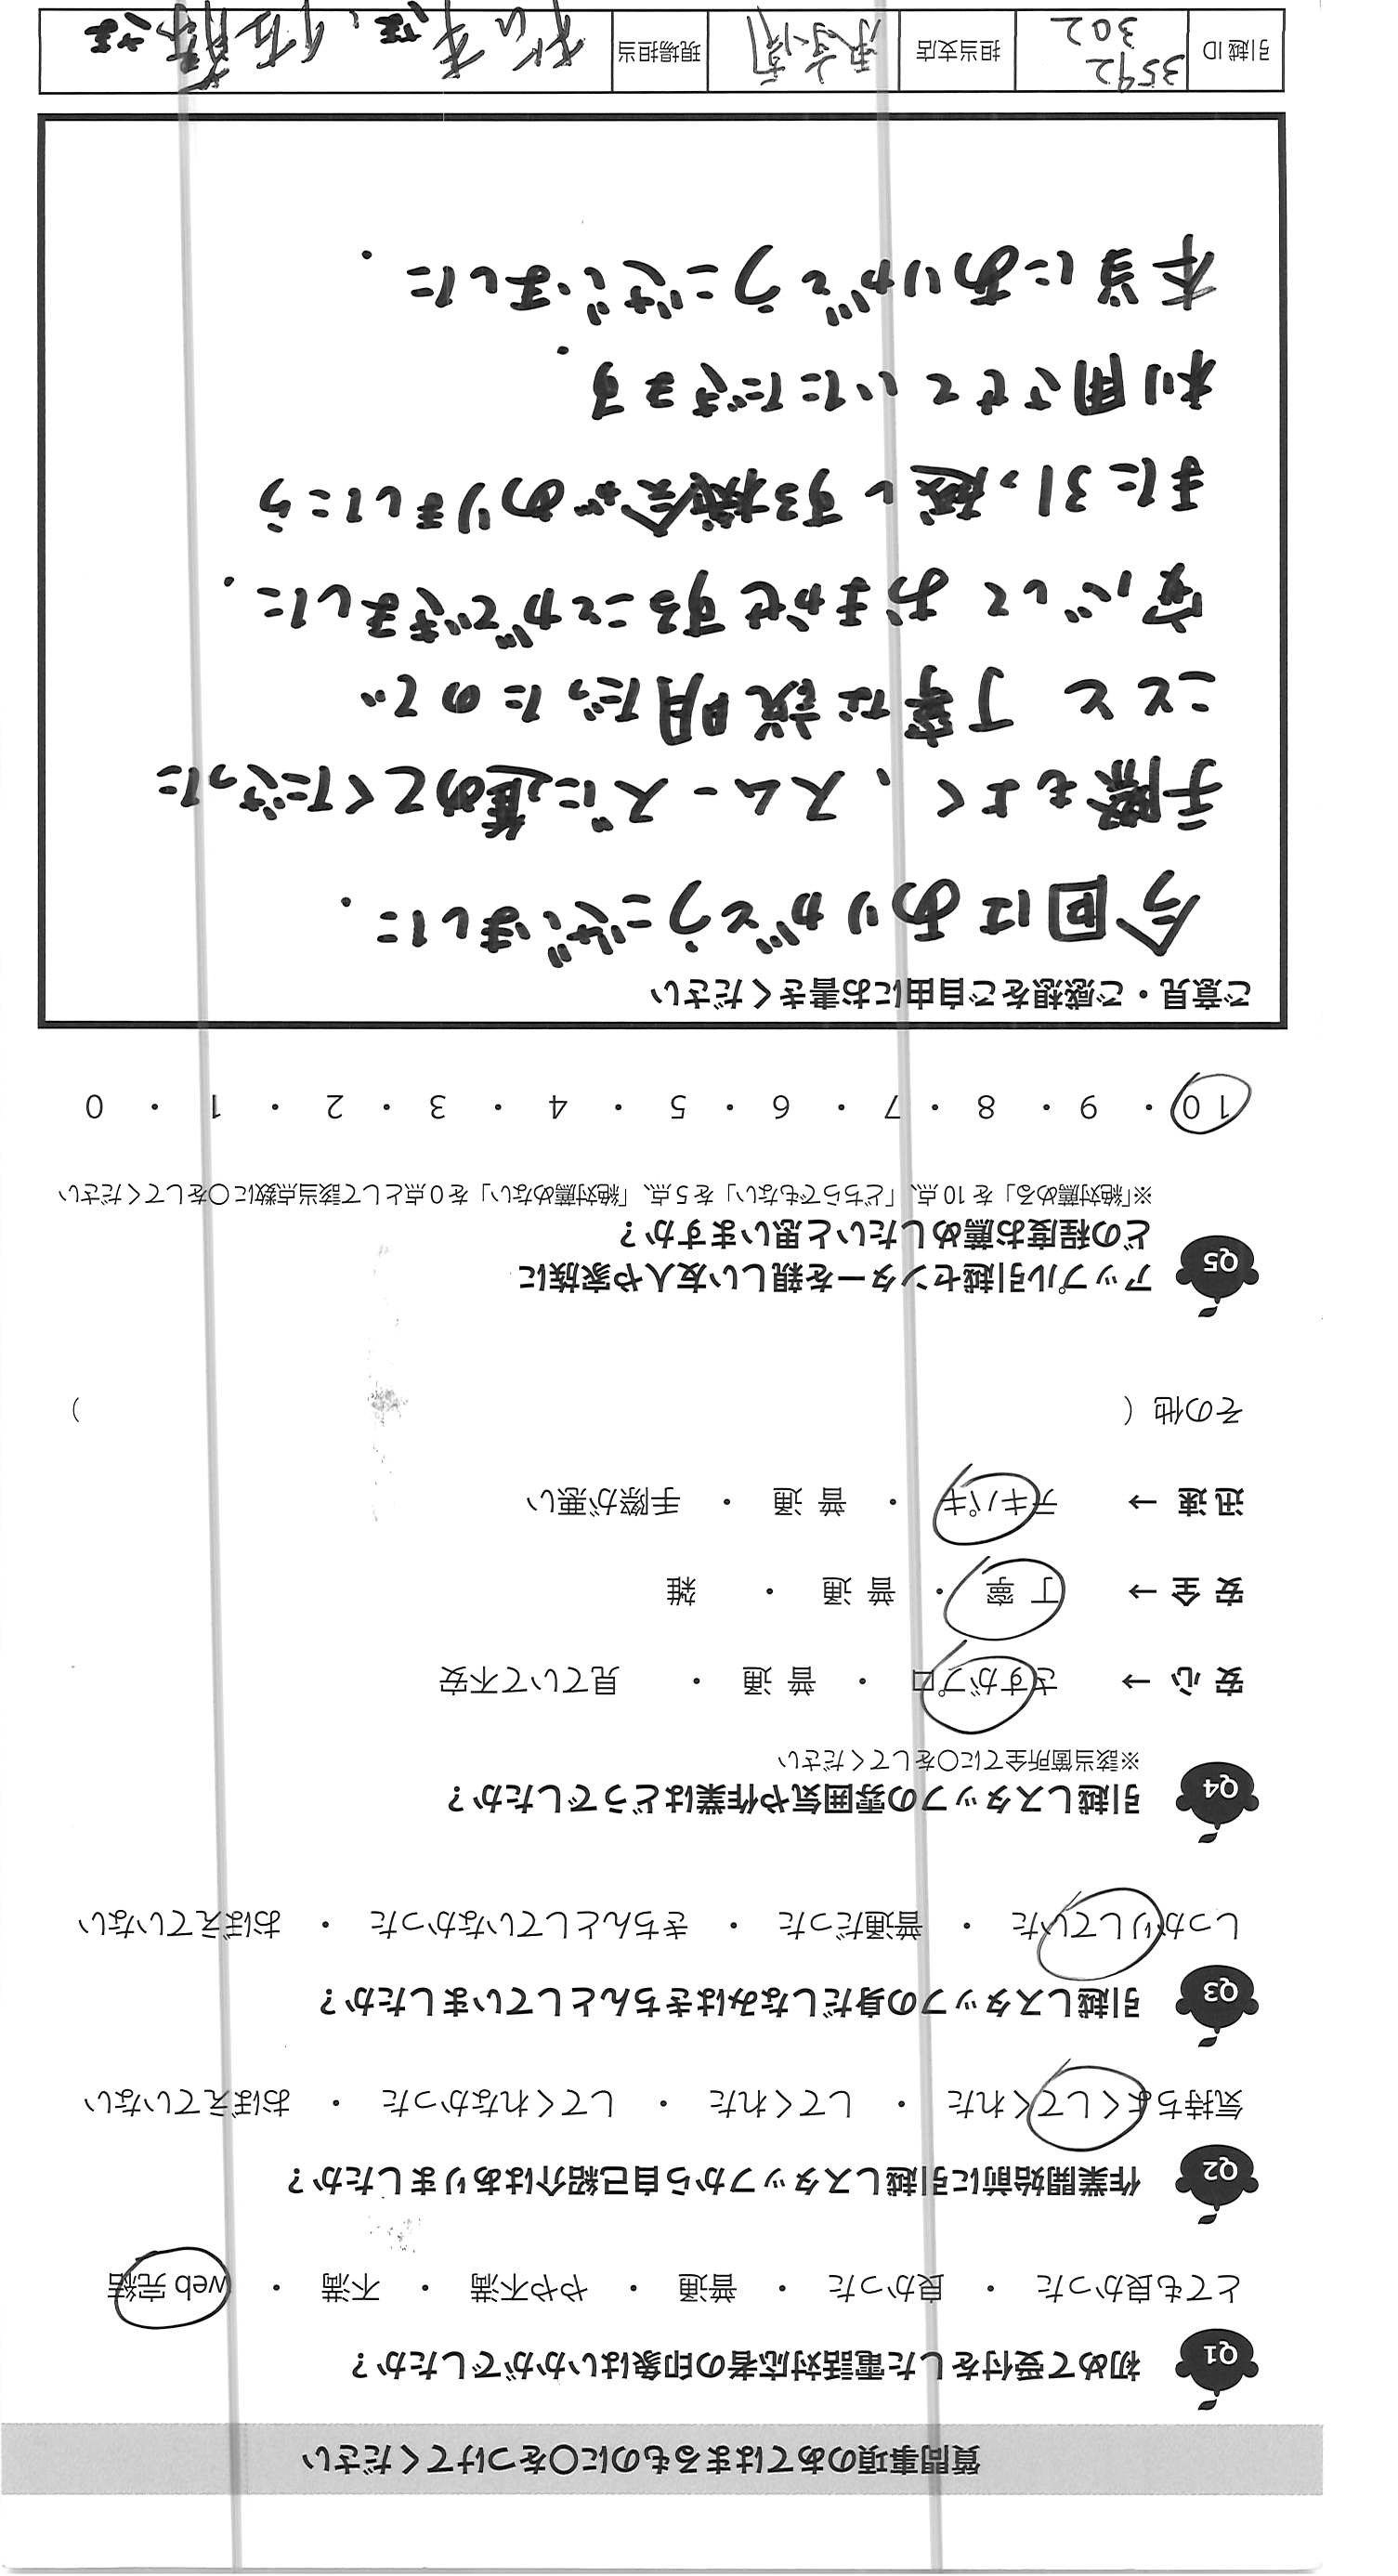 質問事項のあてはまるものに〇をつけてください
Q1 初めて受付をした電話対応者の印象はいかがでしたか？
とても良かった ・ 良かった ・ 普通 ・ やや不満 ・ 不満 ・ web 完結
Q2 作業開始前に引越しスタッフから自己紹介はありましたか？
気持ちよくしてくれた ・ してくれた ・ してくれなかった ・ おぼえていない
Q3 引越しスタッフの身だしなみはきちんとしていましたか？
しっかりしていた ・ 普通だった ・ きちんとしていなかった ・ おぼえていない
Q4 引越しスタッフの雰囲気や作業はどうでしたか？
※該当箇所全てに〇をしてください
安 心 → さすがプロ ・ 普 通 ・ 見ていて不安
安 全 → 丁 寧 ・ 普 通 ・ 雑
迅 速 → テキパキ ・ 普 通 ・ 手際が悪い
その他（ ）
Q5 アップル引越センターを親しい友人や家族に
どの程度お薦めしたいと思いますか？
※「絶対薦める」を 10 点、「どちらでもない」を 5 点、「絶対薦めない」を 0 点として該当点数に〇をしてください
10 ・ 9 ・ 8 ・ 7 ・ 6 ・ 5 ・ 4 ・ 3 ・ 2 ・ 1 ・ 0
ご意見・ご感想をご自由にお書きください
今回はありがとうございました.
手際もよく、スムーズに進めてくださった
ことと 丁寧な説明だったので
安心して おまかせすることができました.
また引っ越しする機会がありましたら
利用させていただきます.
本当にありがとうございました.
引越 ID 3592
302 担当支店 現場担当 佐藤さま